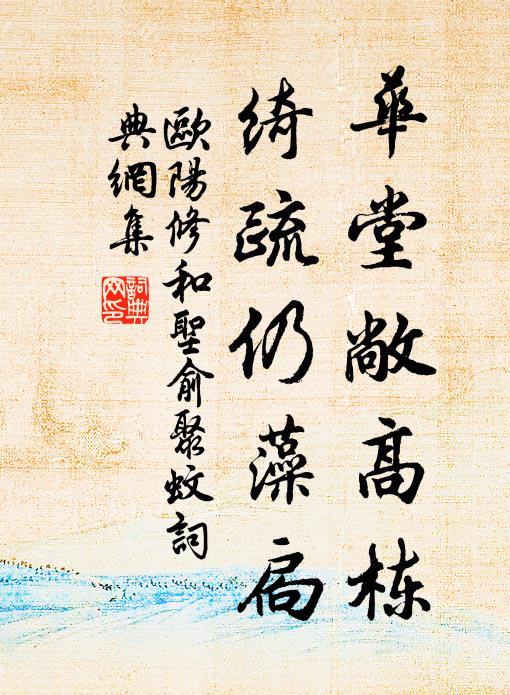 華堂敞高栋
綺疏仍藻扃
歐陽修和聖俞聚蚊詞
典網集
詞典網印